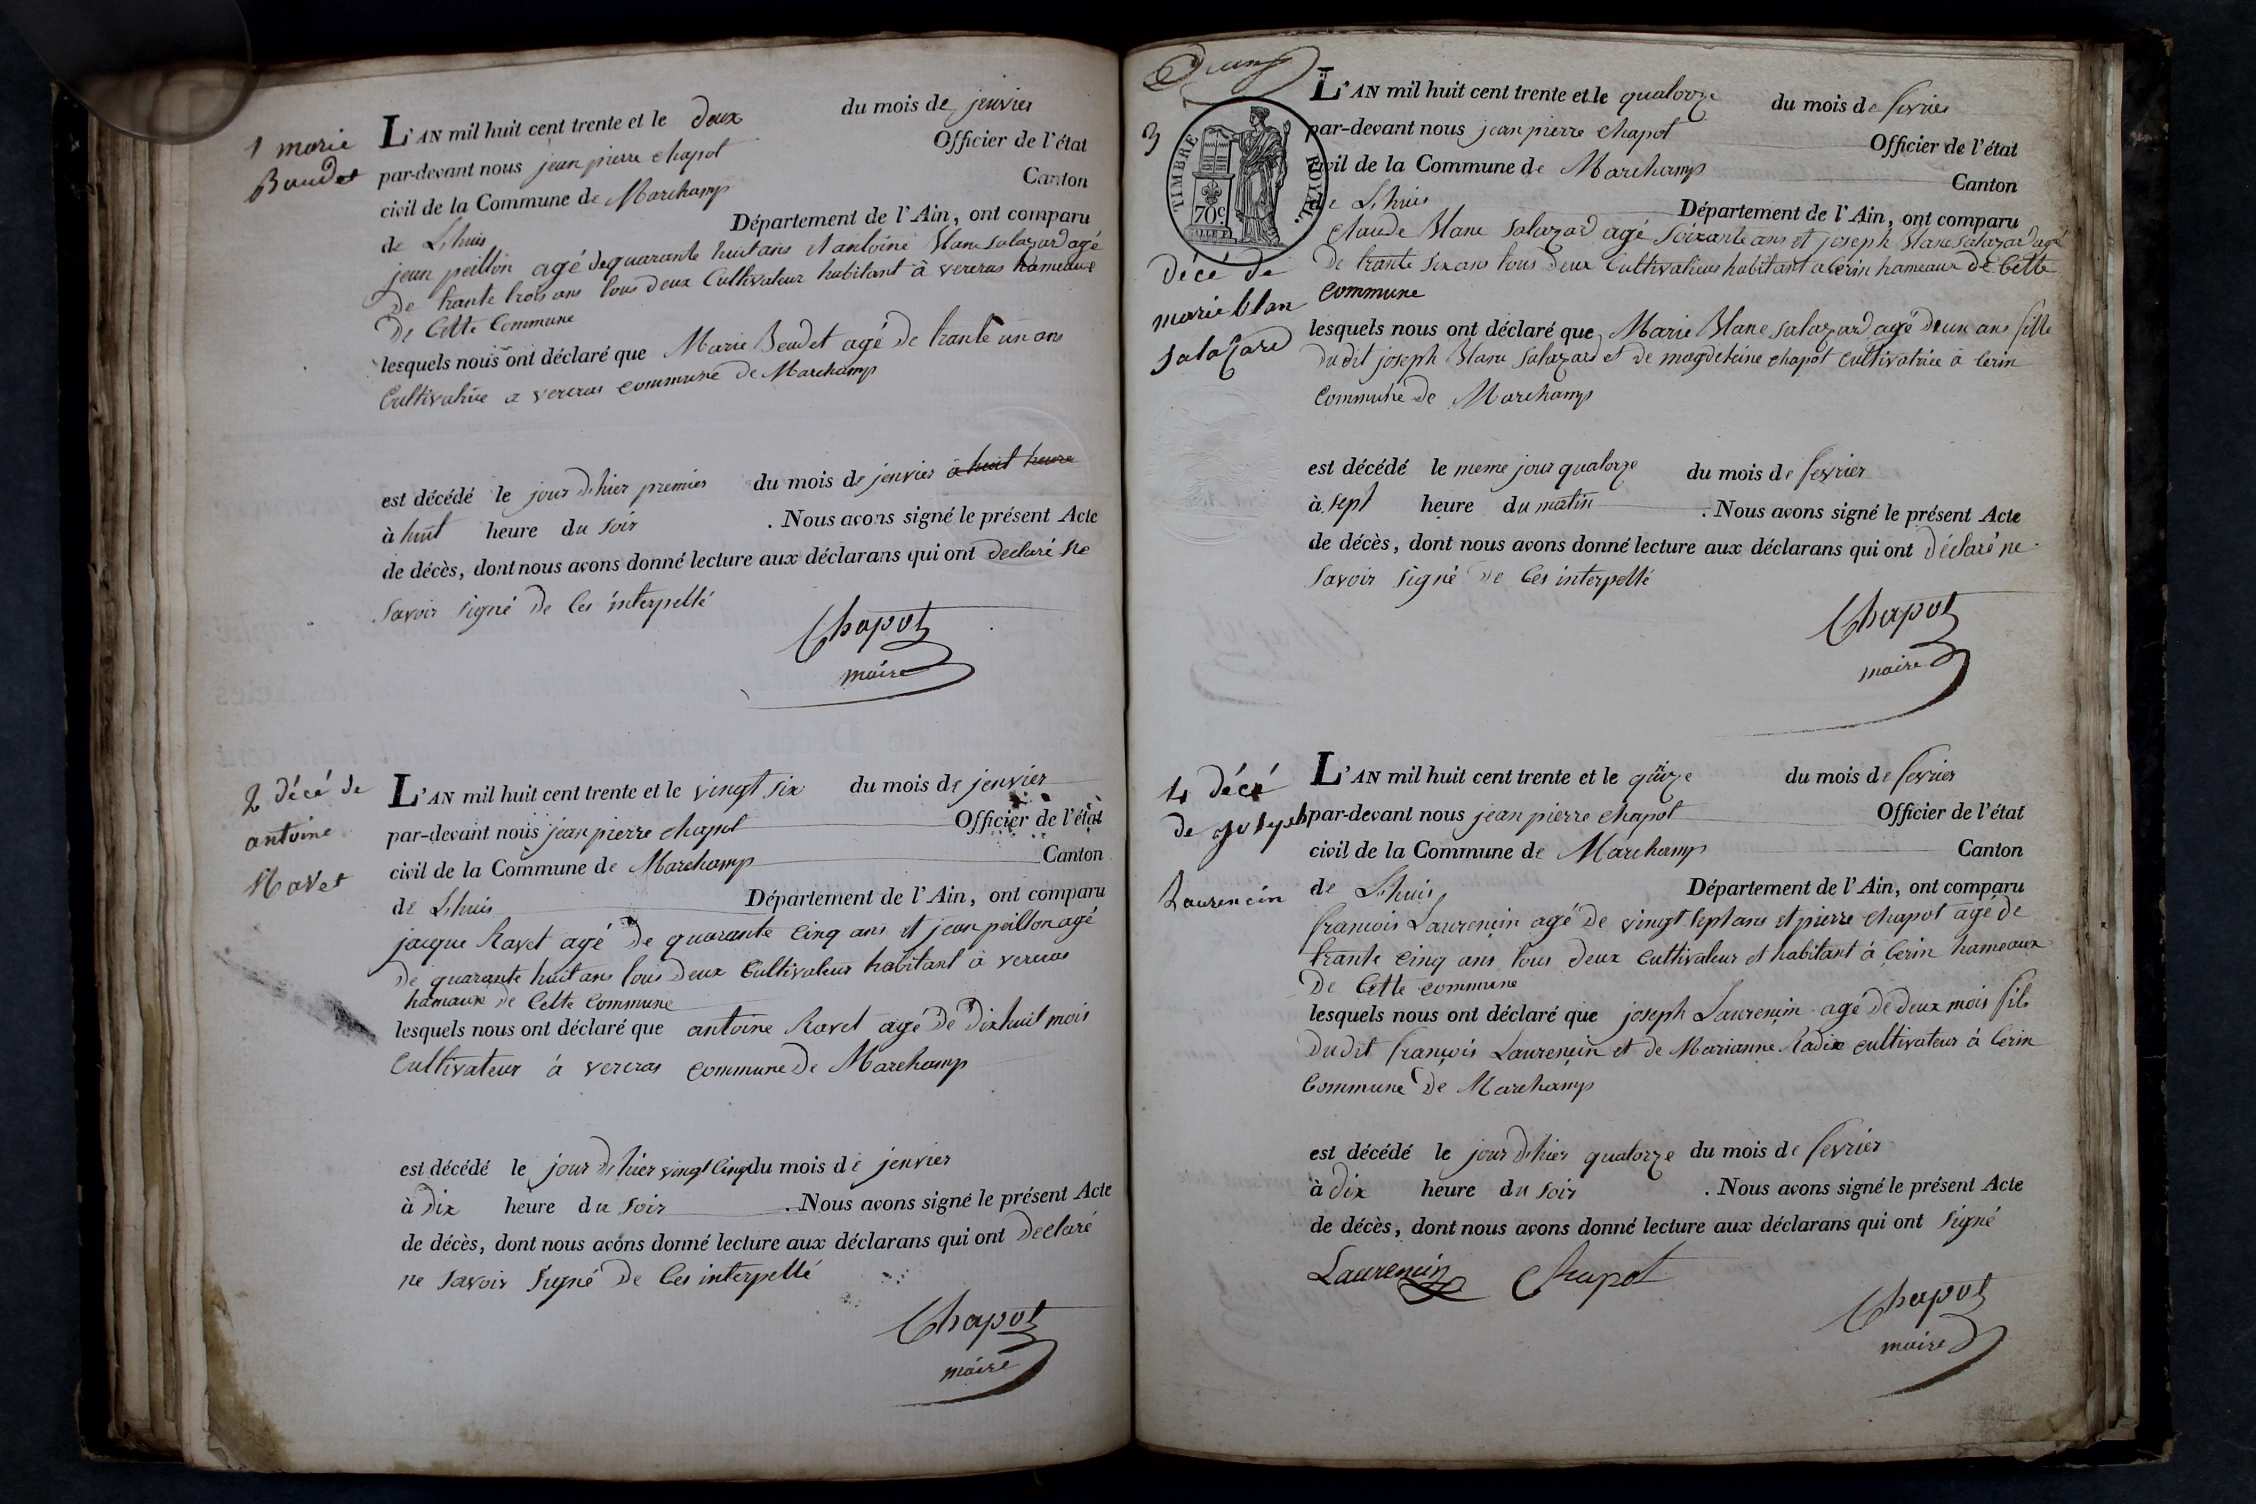 1 marie
Baudet
L'AN mil huit cent trente et le deux du mois de jenvier
par-devant nous jean pierre chapot Officier de l'état
civil de la Commune de Marchamp Canton
de Lhuis Département de l'Ain, ont comparu
jean peillon agé de quarante huit ans et antoine Blanc salazard agé
de trante trois ans tous deux Cultivateur habitant à vercras hameaux
de Cette Commune
lesquels nous ont déclaré que Marie Beudet agé de trante un ans
Cultivatrice a vercras commune de Marchamp
est décédé le jour d'hier premier du mois de jenvier à huit heure
à huit heure du soir . Nous avons signé le présent Acte
de décès, dont nous avons donné lecture aux déclarans qui ont declaré ne
savoir signé de Ces interpellé
Chapot
maire
2 décé de
antoine
Ravet
L'AN mil huit cent trente et le vingt six du mois de jenvier
par-devant nous jean pierre chapot Officier de l'état
civil de la Commune de Marchamp Canton
de Lhuis Département de l'Ain, ont comparu
jacque Ravet agé de quarante cinq ans et jean peillon agé
de quarante huit ans tous deux Cultivateur habitant à vercras
hamaux de Cette Commune
lesquels nous ont déclaré que antoine Ravet agé de dix huit mois
Cultivateur à vercras commune de Marchamp
est décédé le jour d'hier vingt Cinq du mois de jenvier
à dix heure du soir . Nous avons signé le présent Acte
de décès, dont nous avons donné lecture aux déclarans qui ont declaré
ne savoir signé de Ces interpellé
Chapot
maire
3
TIMBRE ROYAL
70c
décé de
marie blan
salazard
L'AN mil huit cent trente et le quatorze du mois de fevrier
par-devant nous jean pierre chapot Officier de l'état
civil de la Commune de Marchamp Canton
de Lhuis Département de l'Ain, ont comparu
Claude Blanc salazard agé soixante ans et joseph Blanc salazard agé
de trante six ans tous deux Cultivateur habitant a Cerin hameaux de Cette
Commune
lesquels nous ont déclaré que Marie Blanc salazard agé d'un ans fille
dudit joseph Blanc salazard et de magdeleine chapot Cultivatrice à Cerin
Commune de Marchamp
est décédé le meme jour quatorze du mois de fevrier
à sept heure du matin . Nous avons signé le présent Acte
de décès, dont nous avons donné lecture aux déclarans qui ont déclaré ne
savoir signé de Ces interpellé
Chapot
maire
4 décé
de joseph
Laurencin
L'AN mil huit cent trente et le quinze du mois de fevrier
par-devant nous jean pierre chapot Officier de l'état
civil de la Commune de Marchamp Canton
de Lhuis Département de l'Ain, ont comparu
françois Laurençin agé de vingt sept ans et pierre chapot agé de
trante cinq ans tous deux Cultivateur et habitant à Cerin hameaux
De Cette commune
lesquels nous ont déclaré que joseph Laurençin agé de deux mois fils
dudit françois Laurençin et de Marianne Radix cultivateur à Cerin
Commune de Marchamp
est décédé le jour d'hier quatorze du mois de fevrier
à dix heure du soir . Nous avons signé le présent Acte
de décès, dont nous avons donné lecture aux déclarans qui ont signé
Laurençin Chapot
Chapot
maire